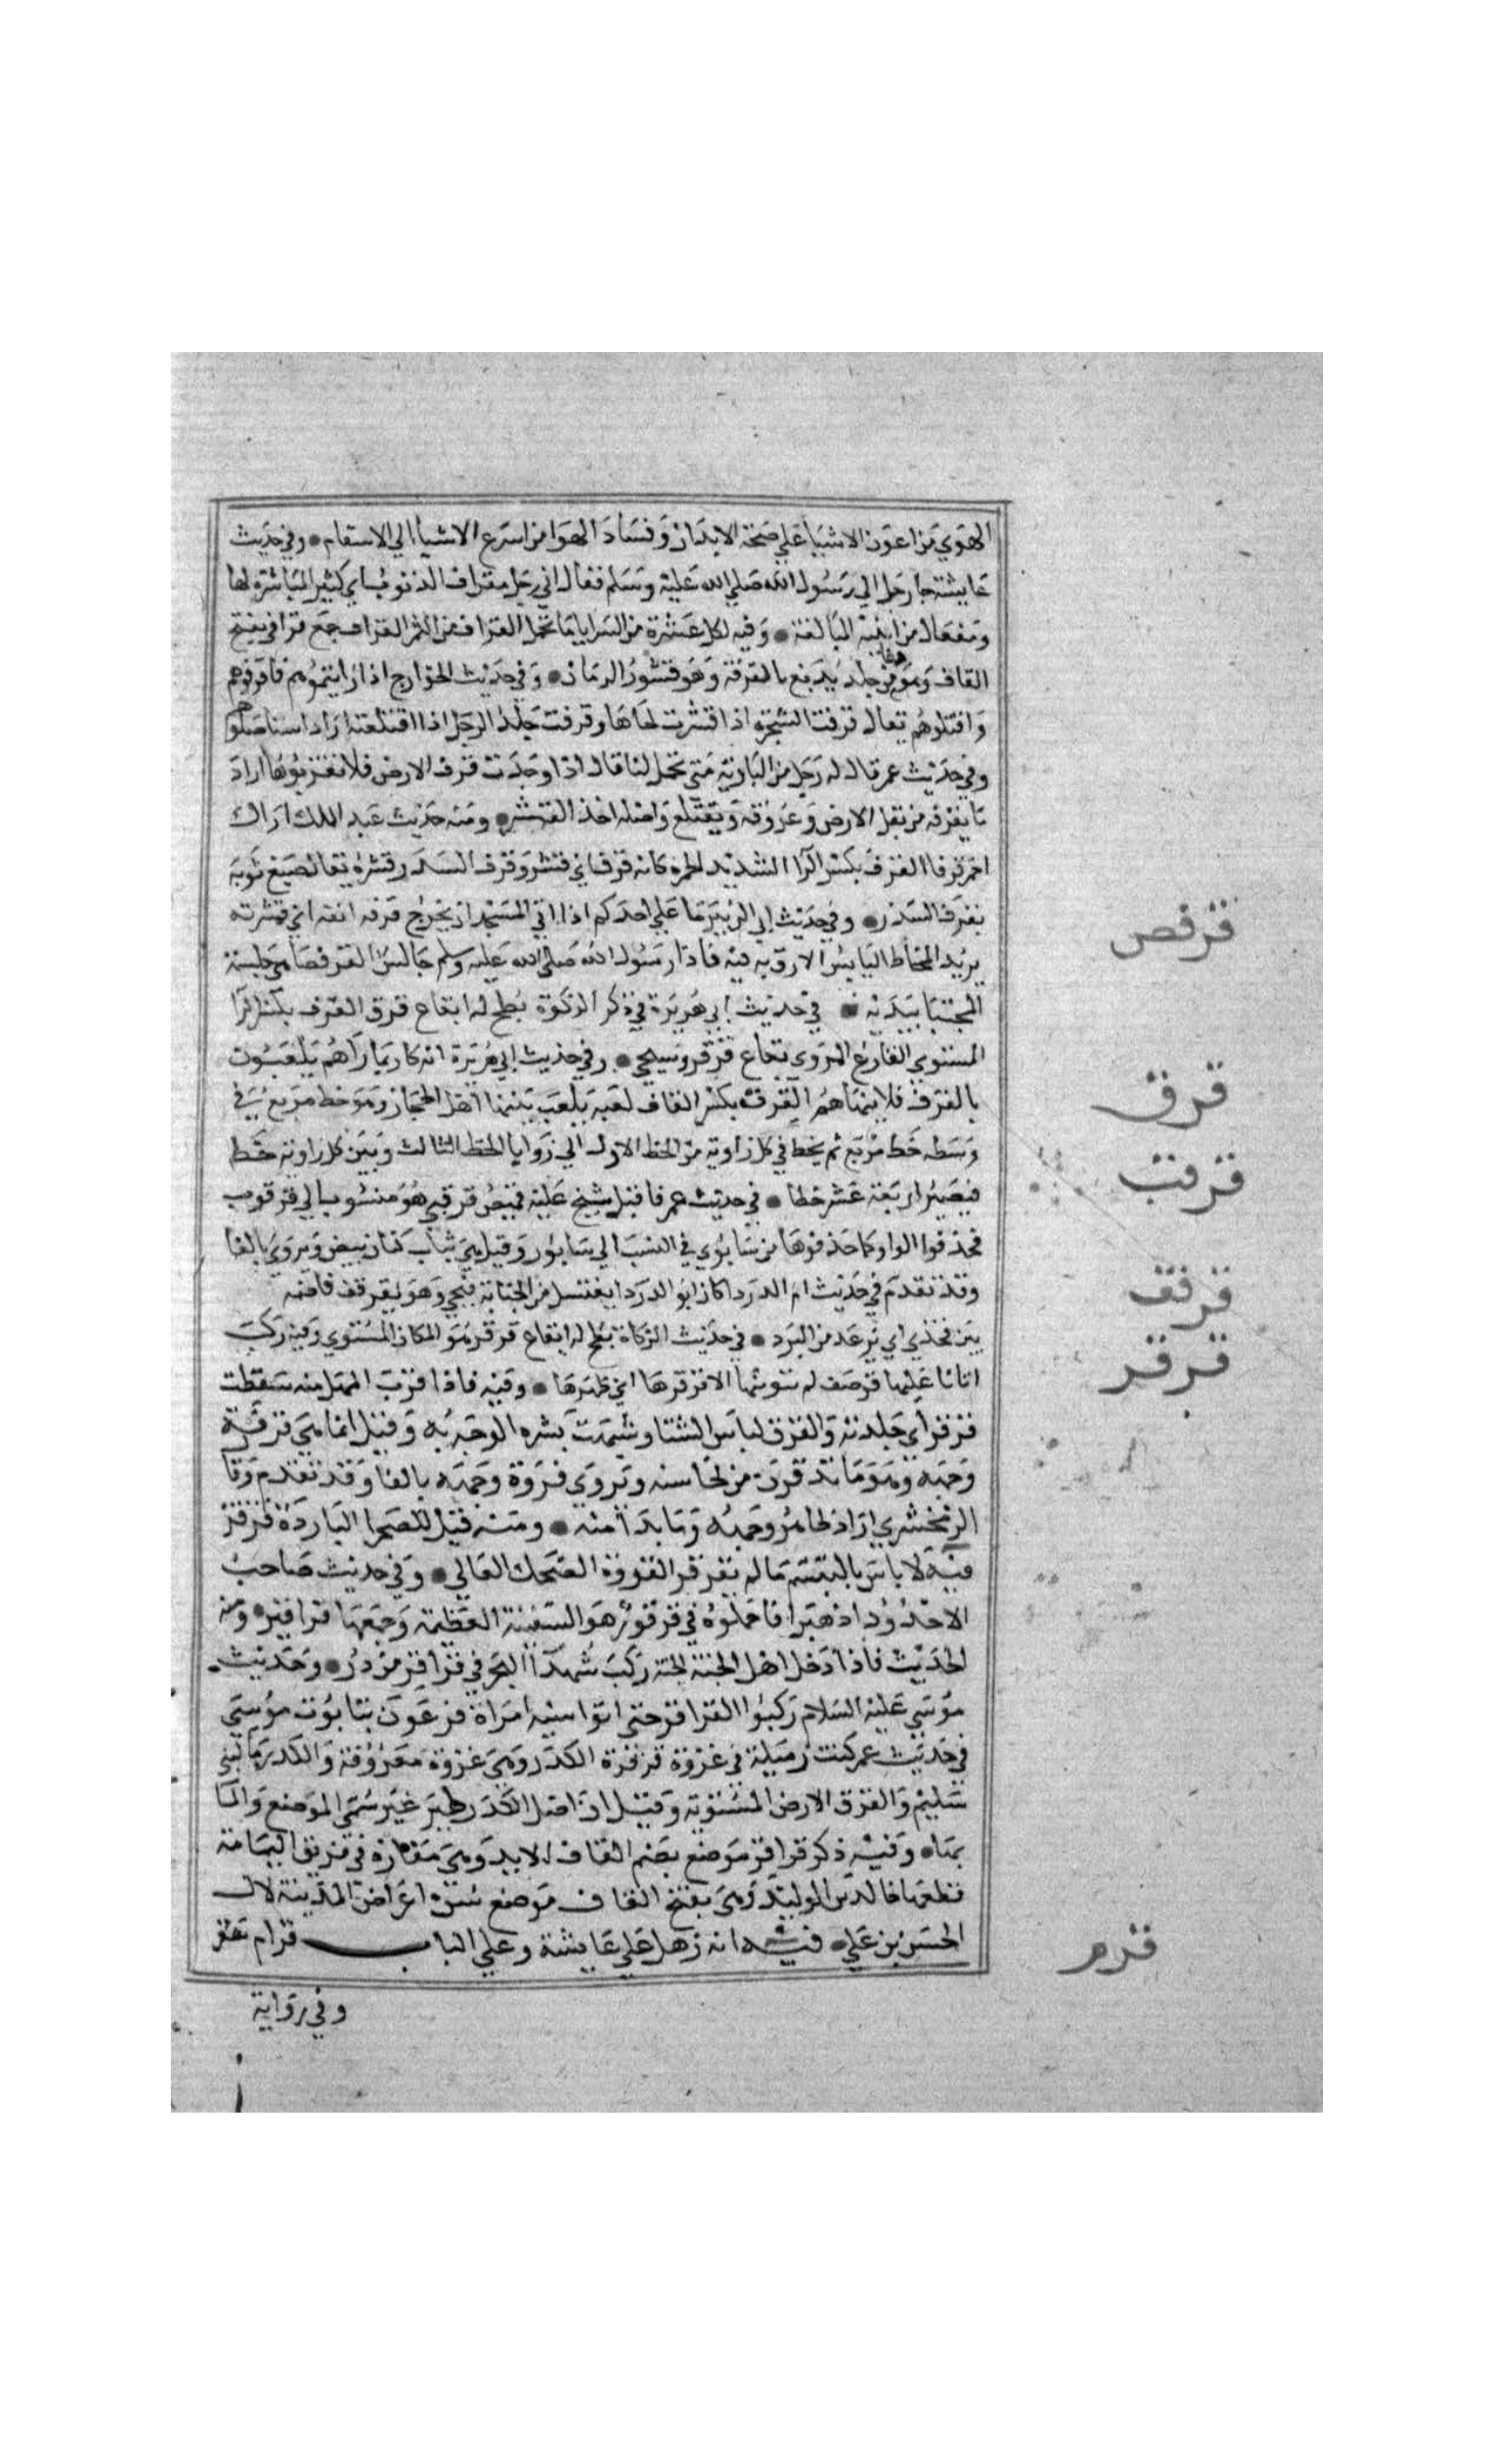 الهوي من اعون الاشيا علي صحة الابدان وفساد الهوا من اسرع الاشيا الي الاسقام • وفي حديث
عايشة جا رجل الي رسول الله صلي الله عليه وسلم فقال اني رجل مقراف الذنوب اي كثير المباشرة لها
ومفعال من ابنية المبالغة • وفيه لكل عشرة من السرايا ما تحمل القراف من الثمر القراف جمع قرف بفتح
القاف وهو من جلد يدبغ بالقرفة وهو قشور الرمان • وفي حديث الخوارج اذا رايتموهم فاقرفوهم
واقتلوهم يقال قرفت الشجرة اذا قشرت لحاها وقرفت جلد الرجل اذا اقتلعته اراد استاصلوهم
وفي حديث عمر قال له رجل من البادية متي تحل لنا قال اذا وجدت قرف الارض فلا تقربوها اراد
ما يقرف من بقل الارض وعروقه ويقتلع واصله اخذ القشر • ومنه حديث عبد الملك اراك
احمر قرفا القرف بكسر الرا الشديد الحمرة كانه قرف اي قشر وقرف السدر قشره يقال صبغ ثوبه
بقرف السدر • وفي حديث ابن الزبير ما علي احدكم اذا اتي المسجد ان يخرج قرفه انفه اي قشرته
يريد المخاط اليابس الازق به فيه فاذا رسول الله صلي الله عليه وسلم جالس القرفصا هي جلسة
المحتبا بيديه • في حديث ابي هريرة في ذكر الزكوة بطح له ابقاع قرق القرق بكسر الرا
المستوي الفارغ المروي بقاع قرقر وسيجي • وفي حديث ابي هريرة انه كان ربما راهم يلعبون
بالقرق فلا ينهاهم القرق بكسر القاف لعبة يلعب بها اهل الحجاز وهو خط مربع في
وسطه خط مربع ثم يخط في كل زاوية من الخط الاول الي زوايا الخط الثالث وبين كل زاوية خط
فيصير اربعة عشر خطا • في حديث عمر فاقبل شيخ عليه قميص قرقبي هو منسوب الي قرقوب
فحذفوا الواو كما حذفوها من سابوري في النسب الي سابور وقيل هي ثياب كتان بيض ويروي بالفا
وقد تقدم في حديث ام الدردا كان ابو الدردا يغتسل من الجنابة فيجي وهو يقرقف فاضمه
بين فخذي اي يرعد من البرد • في حديث الزكاة بطح له ابقاع قرقر هو المكان المستوي وفيه ركب
اتانا عليها قرصف لم يبق منها الا قرقرها اي ظهرها • وفيه فاذا قرب المهل منه سقطت
قرقر اي جلدته والقرقر لباس النسا وشبهت بشرة الوجه به وقيل انما هي قرقرة
وجهه وهو ما ترقرق من محاسنه وتروي فروة وجهه بالفا وقد تقدم وقا
الزمخشري اراد ظاهر وجهه وما بدا منه • ومنه قيل للصحرا البارزة قرقر
فيه لا باس بالتبسم ما لم يقرقر القرقرة الضحك العالي • وفي حديث صاحب
الاخدود اذهبوا فاحملوه في قرقور هو السفينة العظيمة وجمعها قراقير • ومنه
الحديث فاذا دخل اهل الجنة الجنة ركب شهدا البحر في قراقير من در • وحديث
موسي عليه السلام ركبوا القراقر حتي اتوا اسية امراة فرعون بتابوت موسي
في حديث عمر كنت زميله في غزوة قرقرة الكدر وهي غزوة معروفة والكدر ما لبني
سليم والقرقر الارض المستوية وقيل ان اصل الكدر طير غبر سمي الموضع والما
بها • وفيه ذكر قراقر موضع بضم القاف الاولي وهي مفازة في طريق اليمامة
قطعها خالد بن الوليد وهي بفتح القاف موضع من اعراض المدينة لال
الحسن بن علي • فيه انه دخل علي عايشة وعلي الباب قرام ستر
وفي رواية
قرفص
قرق
قرقب
قرقف
قرقر
قرم